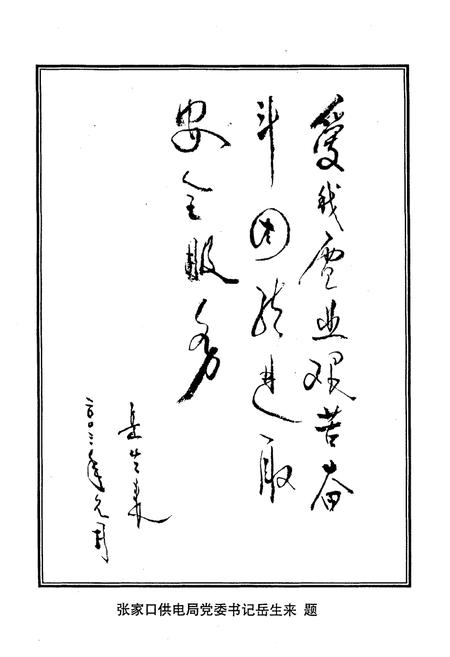 愛我電业艰苦奋
斗团结进取
安全服务
岳生来
二〇〇二年元月
张家口供电局党委书记岳生来 题